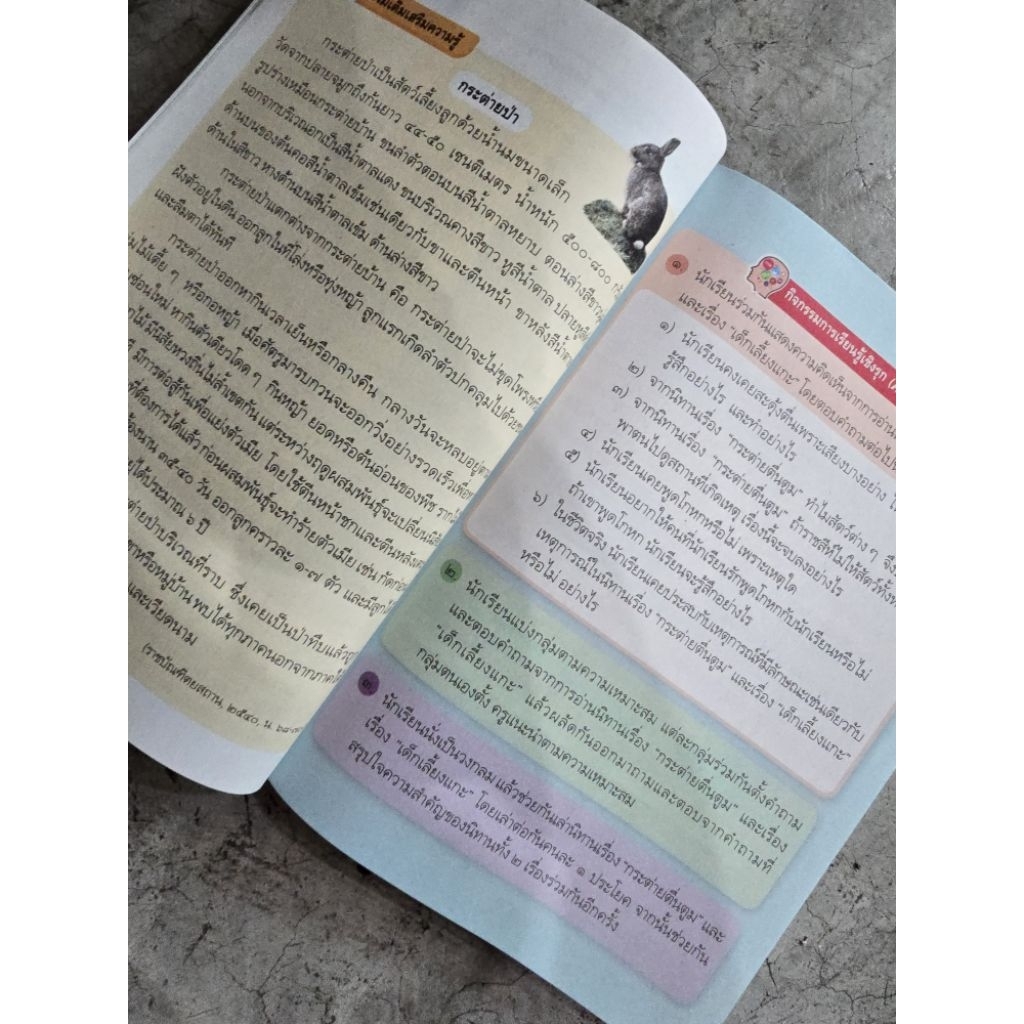 เติมเสริมความรู้
กระต่ายป่า
กระต่ายป่าเป็นสัตว์เลี้ยงลูกด้วยน้ำนมขนาดเล็ก
วัดจากปลายจมูกถึงก้นยาว ๔๔-๕๐ เซนติเมตร น้ำหนัก ๕๐๐-๘๐๐
รูปร่างเหมือนกระต่ายบ้าน ขนลำตัวตอนบนสีน้ำตาลหยาบ ตอนล่างสีขาว
นอกจากบริเวณอกเป็นสีน้ำตาลแดง ขนบริเวณคางสีขาว หูสีน้ำตาล ปลายหู
ด้านบนของต้นคอสีน้ำตาลเข้มเช่นเดียวกับขาและตีนหน้า ขาหลังสีน้ำตาล
ด้านในสีขาว หางด้านบนสีน้ำตาลเข้ม ด้านล่างสีขาว
กระต่ายป่าแตกต่างจากกระต่ายบ้าน คือ กระต่ายป่าจะไม่ขุดโพรง
ฝังตัวอยู่ในดิน ออกลูกในที่โล่งหรือทุ่งหญ้า ลูกแรกเกิดลำตัวปกคลุมไปด้วย
และลืมตาได้ทันที
กระต่ายป่าออกหากินเวลาเย็นหรือกลางคืน กลางวันจะหลบอยู่
ไม้เตี้ย ๆ หรือกอหญ้า เมื่อศัตรูมารบกวนจะออกวิ่งอย่างรวดเร็วเพื่อ
ซ่อนใหม่ หากินตัวเดียวโดด ๆ กินหญ้า ยอดหรือต้นอ่อนของพืช
ไม่มีนิสัยหวงถิ่นไม่ล้ำเขตกัน แต่ระหว่างฤดูผสมพันธุ์จะเปลี่ยน
มีการต่อสู้กันเพื่อแย่งตัวเมีย โดยใช้ตีนหน้าชกและตีนหลัง
ที่ต้องการได้แล้ว ก่อนผสมพันธุ์จะทำร้ายตัวเมีย เช่น กัด
นาน ๓๕-๔๐ วัน ออกลูกคราวละ ๑-๗ ตัว และมี
ได้ประมาณ ๖ ปี
ป่าบริเวณที่ราบ ซึ่งเคยเป็นป่าทึบแล้ว
หรือหมู่บ้าน พบได้ทุกภาคนอกจากภาค
และเวียดนาม
(ราชบัณฑิตยสถาน, ๒๕๔๐, น.
กิจกรรมการเรียนรู้เชิงรุก
๑. นักเรียนร่วมกันแสดงความคิดเห็นจากการอ่าน
และเรื่อง "เด็กเลี้ยงแกะ" โดยตอบคำถามต่อไป
๑) นักเรียนคงเคยสะดุ้งตื่นเพราะเสียงบางอย่าง
รู้สึกอย่างไร และทำอย่างไร
๒) จากนิทานเรื่อง "กระต่ายตื่นตูม" ทำไมสัตว์ต่าง ๆ
๓) จากนิทานเรื่อง "กระต่ายตื่นตูม" ถ้าราชสีห์ไม่ให้สัตว์ทั้ง
พาตนไปดูสถานที่เกิดเหตุ เรื่องนี้จะจบลงอย่างไร
๔) นักเรียนเคยพูดโกหกหรือไม่ เพราะเหตุใด
๕) นักเรียนอยากให้คนที่นักเรียนรักพูดโกหกกับนักเรียนหรือไม่
ถ้าเขาพูดโกหก นักเรียนจะรู้สึกอย่างไร
๖) ในชีวิตจริง นักเรียนเคยประสบกับเหตุการณ์ที่มีลักษณะเช่นเดียวกับ
เหตุการณ์ในนิทานเรื่อง "กระต่ายตื่นตูม" และเรื่อง "เด็กเลี้ยงแกะ"
หรือไม่ อย่างไร
๒. นักเรียนแบ่งกลุ่มตามความเหมาะสม แต่ละกลุ่มร่วมกันตั้งคำถาม
และตอบคำถามจากการอ่านนิทานเรื่อง "กระต่ายตื่นตูม" และเรื่อง
"เด็กเลี้ยงแกะ" แล้วผลัดกันออกมาถามและตอบจากคำถามที่
กลุ่มตนเองตั้ง ครูแนะนำตามความเหมาะสม
๓. นักเรียนนั่งเป็นวงกลม แล้วช่วยกันเล่านิทานเรื่อง "กระต่ายตื่นตูม" และ
เรื่อง "เด็กเลี้ยงแกะ" โดยเล่าต่อกันคนละ ๑ ประโยค จากนั้นช่วยกัน
สรุปใจความสำคัญของนิทานทั้ง ๒ เรื่องร่วมกันอีกครั้ง